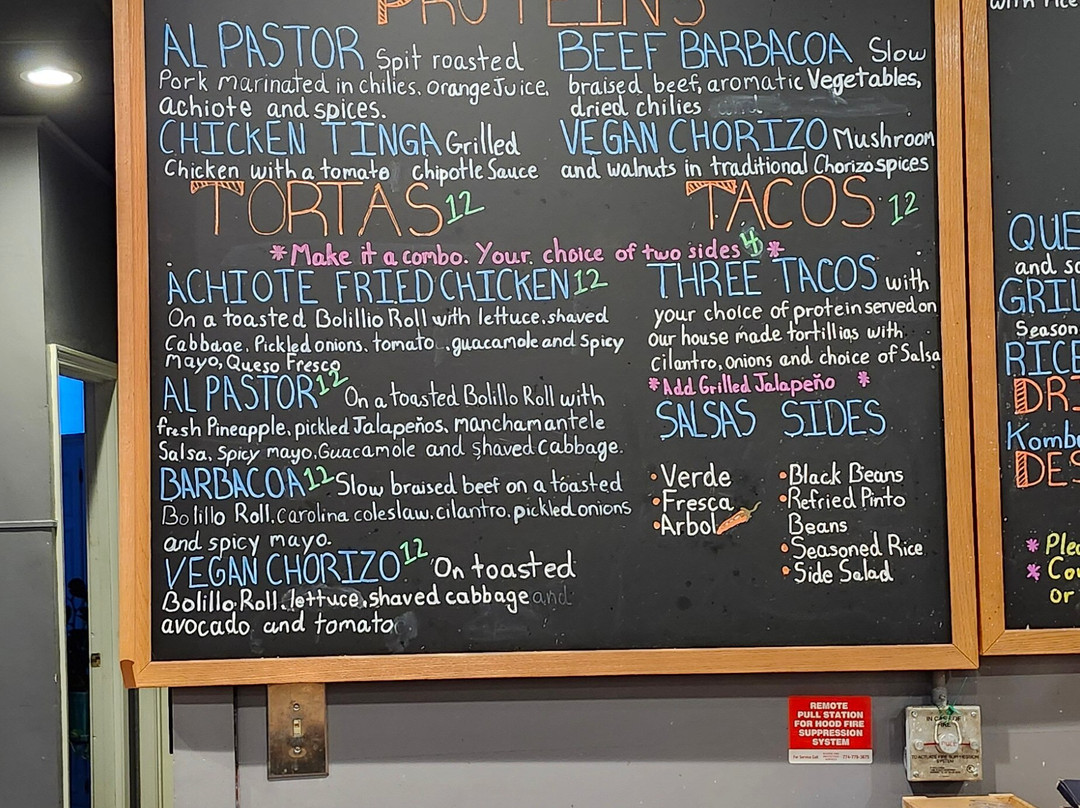 PROTEINS
AL PASTOR Spit roasted
Pork marinated in chilies, orange Juice,
achiote and spices.
CHICKEN TINGA Grilled
Chicken with a tomato chipotle Sauce
BEEF BARBACOA Slow
braised beef, aromatic Vegetables,
dried chilies and
VEGAN CHORIZO Mushroom
and walnuts in traditional Chorizo spices
TORTAS 12
TACOS 12
*Make it a combo. Your choice of two sides 4 *
ACHIOTE FRIED CHICKEN 12
On a toasted Bolillio Roll with lettuce, shaved
Cabbage, Pickled onions, tomato, guacamole and spicy
Mayo, Queso Fresco
AL PASTOR 12 On a toasted Bolillo Roll with
fresh Pineapple, pickled Jalapeños, manchamantele
Salsa, Spicy mayo, Guacamole and Shaved Cabbage.
BARBACOA 12 Slow braised beef on a toasted
Bolillo Roll, Carolina coleslaw, cilantro, pickled onions
and spicy mayo.
VEGAN CHORIZO 12 On toasted
Bolillo Roll, lettuce, shaved cabbage and
avocado and tomato
THREE TACOS with
your choice of protein served on
our house made tortillias with
cilantro, onions and choice of Salsa
*Add Grilled Jalapeño *
SALSAS
• Verde
• Fresca
• Arbol
SIDES
• Black Beans
• Refried Pinto
Beans
• Seasoned Rice
• Side Salad
QUE
and
GRIL
Season
RICE
DRI
Komb
DES
* Plea
* Co
or
REMOTE
PULL STATION
FOR HOOD FIRE
SUPPRESSION
SYSTEM
For Service Call
IN CASE OF
FIRE